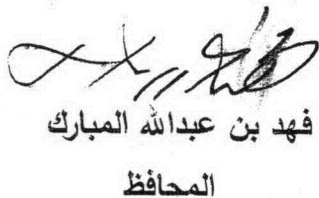 فهد بن عبدالله المبارك
المحافظ